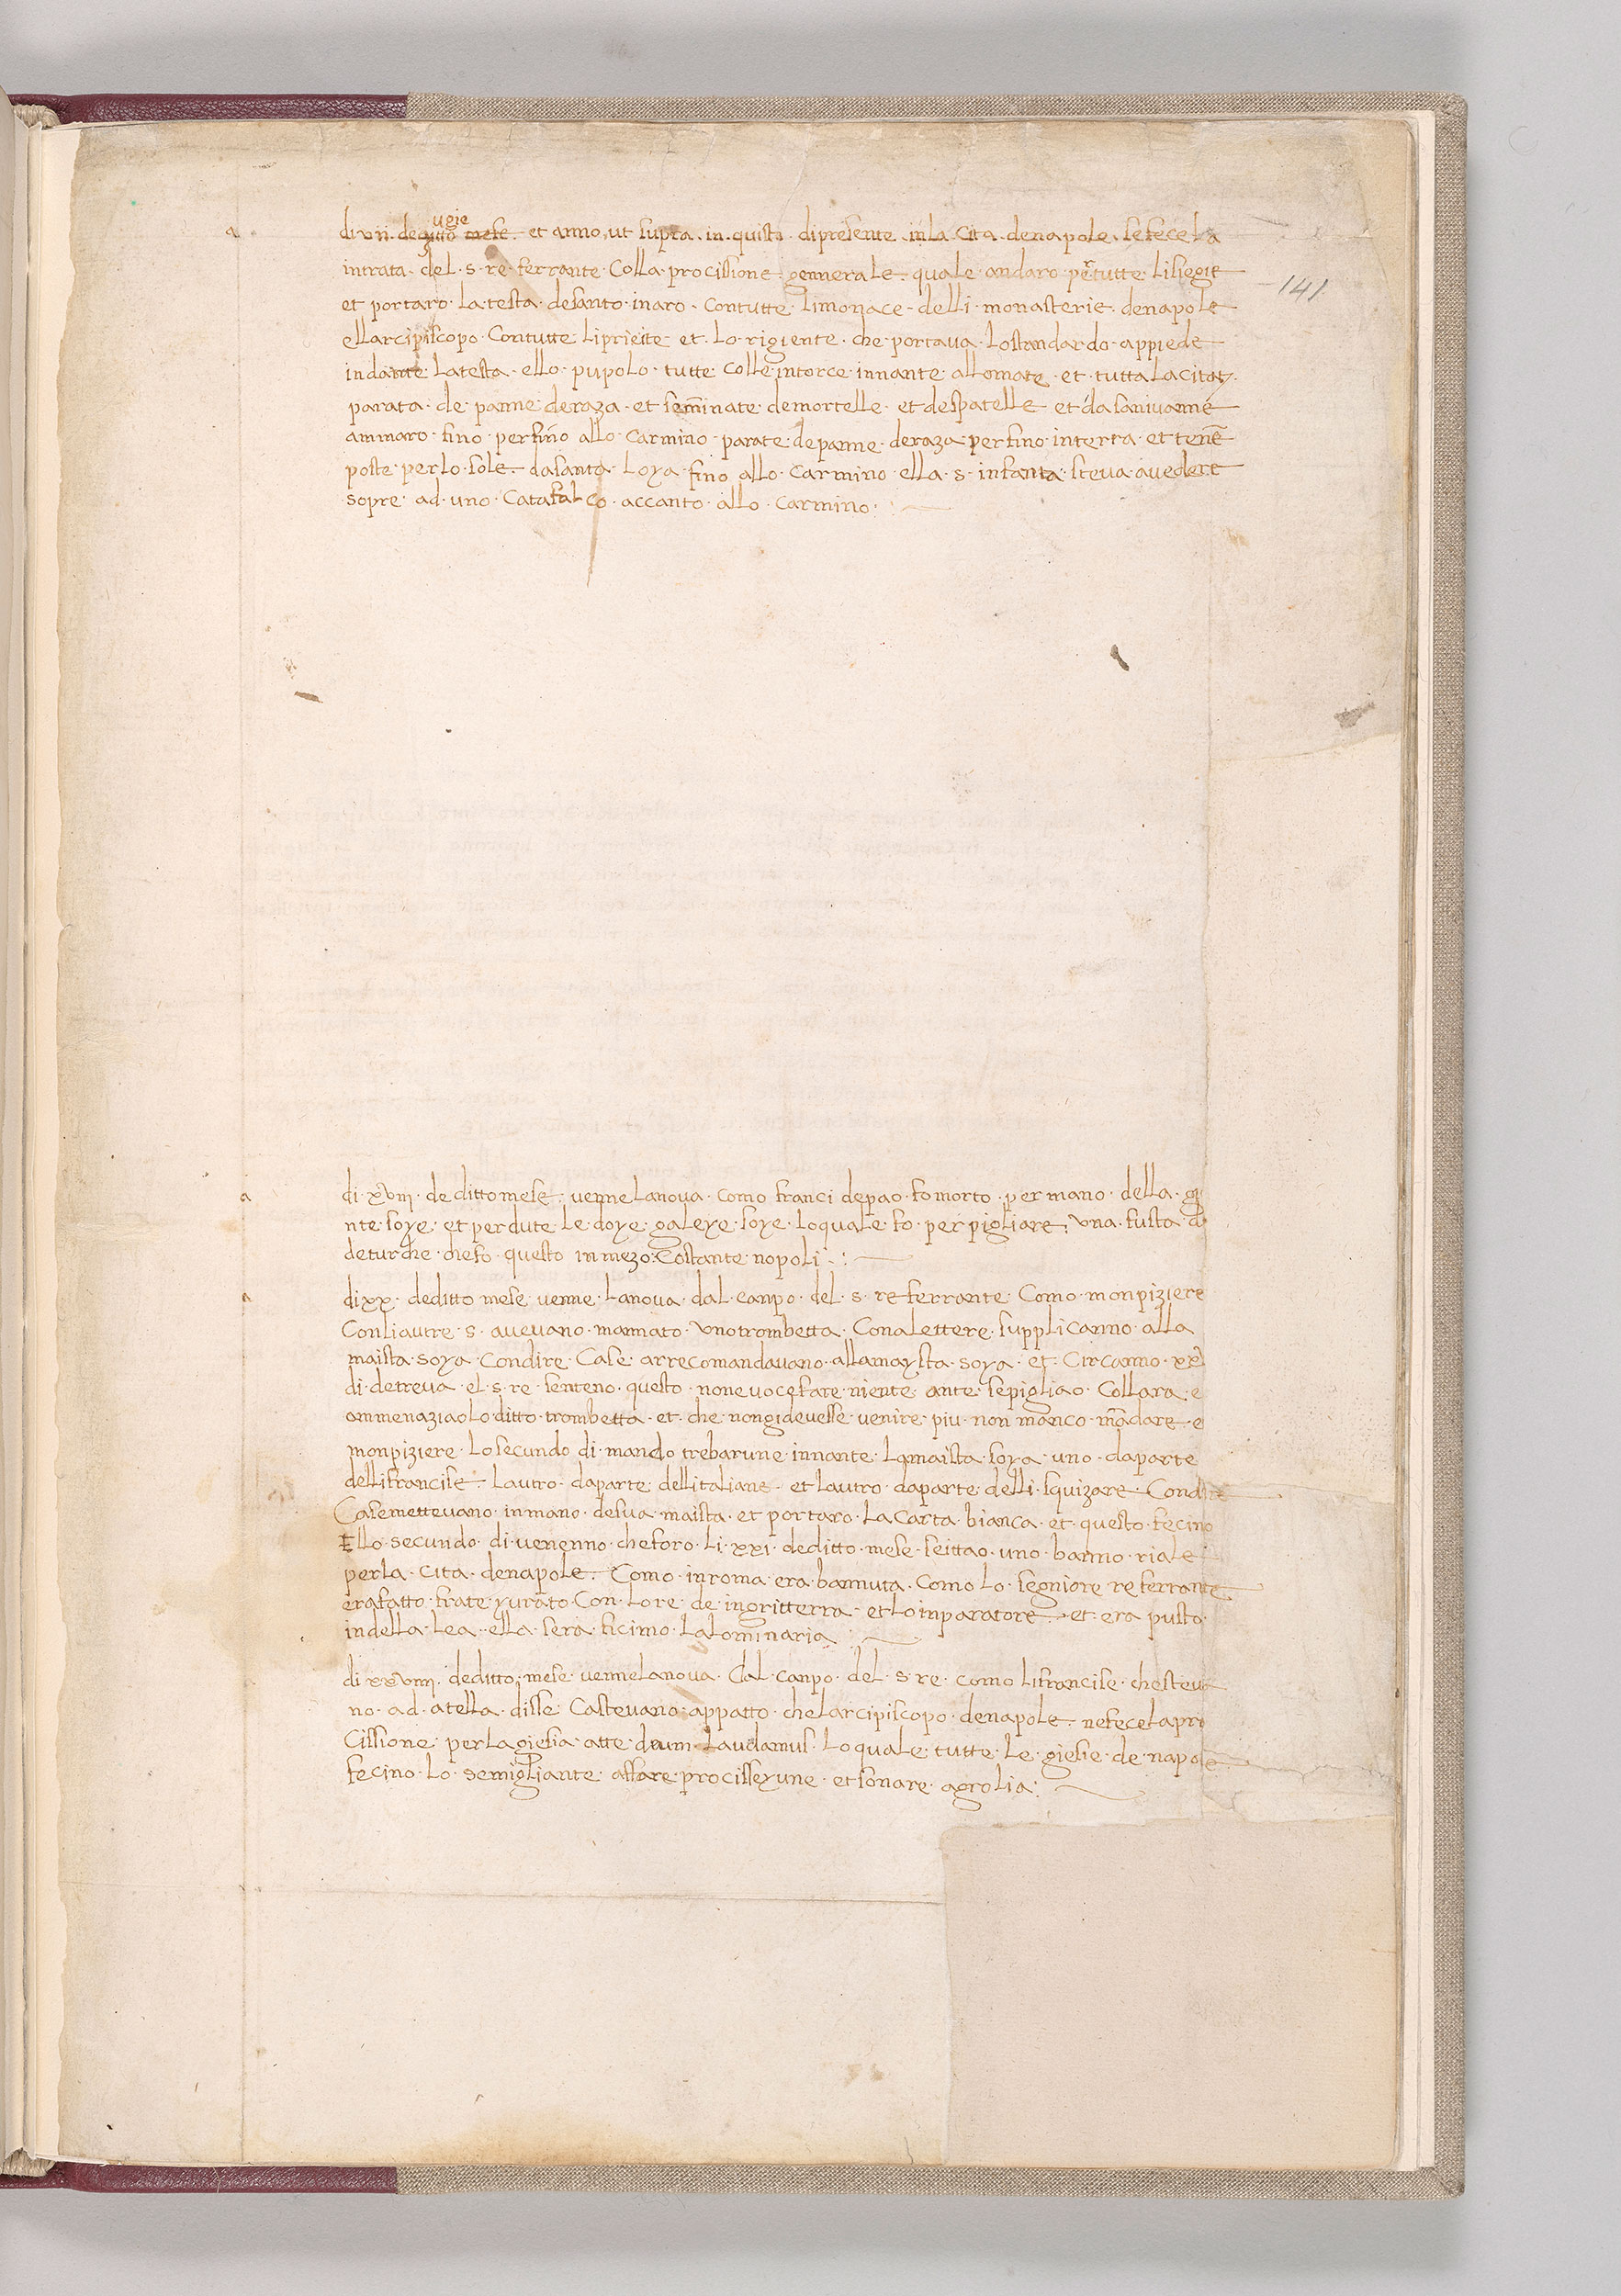 ugie
a di vii. de ditto mese. et anno. ut supra. in. quisto. di presente. in la. Cita. de napole. se fece la
intrata. del. s. re. ferrante. Colla. procissione. gennerale. quale. andaro. per tutte. li siegie
141
et portaro. la testa. de santo. inaro. Con tutte. li monace. delli. monasterie. de napole
ell arcipiscopo. Con tutte. li prieite. et. lo. rigiente. che. portava. lo standardo. appiede
in dante. la testa. ello. pupolo. tutte. Colle intorce. innante. all omate. et. tutta la citat.
parata. de. panne. de raza. et semminate. de mortelle. et de spatelle. et da sanivanne
ammaro. fino. per fino allo. Carmino. parate. de panne. deraza. per fino. in terra. et tene
poste. per lo. sole. da santa. loya. fino. allo. Carmino. ella. s. infanta. steva. a vedere
sopre. ad. uno. Catafalco. accanto. allo. Carmino.
a di. xviii. de ditto mese. venne la nova. Como. franci. de pao. fo morto. per mano. della. gi
nte. soye. et perdute. le doye. galeye. soye. lo quale. fo. per pigliare. una. fusta. d
de turche. che fo. questo in mezo. Costante nopoli.
a di xx. de ditto mese. venne. la nova. dal. canpo. del. s. re ferrante. Como. monpiziere
Con li autre. s. avevano. mannato. uno trombetta. Con a lettere. supplicanno. alla
maista. soya. Con dire. Ca se. arrecomandavano. alla maysta. soya. et. Circanno. xx
di. de treva. el. s. re. senteno. questo. non e voce fare. niente. ante. se pigliao. Collara. e
ammenaziao lo. ditto. trombetta. et. che. non gi devesse. venire. piu. non manco. mandare. e
monpiziere. lo secundo. di. mando tre barune. innante. la maista. soya. uno. da parte
delli francise. lautro. da parte. dell italiane. et lautro. da parte. delli. squizare. Con dire
Ca se mettevano. in mano. de sua. maista. et portaro. la Carta. bianca. et. questo. fecino
Ello. secundo. di. venenno. che foro. li. xxi. de ditto. mese. seittao. uno. banno. riale
per la. Cita. de napole. Como. in roma. era. bannuta. Como lo. segniore. re ferrante
era fatto. frate. yurato. Con. lore. de ingritterra. et lo inparatore. et. era pusto
in della. lea. ella. sera. ficimo. la lominaria
di xxviiii. de ditto. mese. venne la nova. dal. canpo. del. s. re. como li francise. che steva
no. ad. atella. disse. Ca stevano. appatto. che larcipiscopo. de napole. ne fece la pro
Cissione. per la giesia. atte. deum. laudamus. lo quale. tutte. le. giesie. de. napole
fecino. lo. semigliante. affare. procisseyune. et sonare. agrolia.